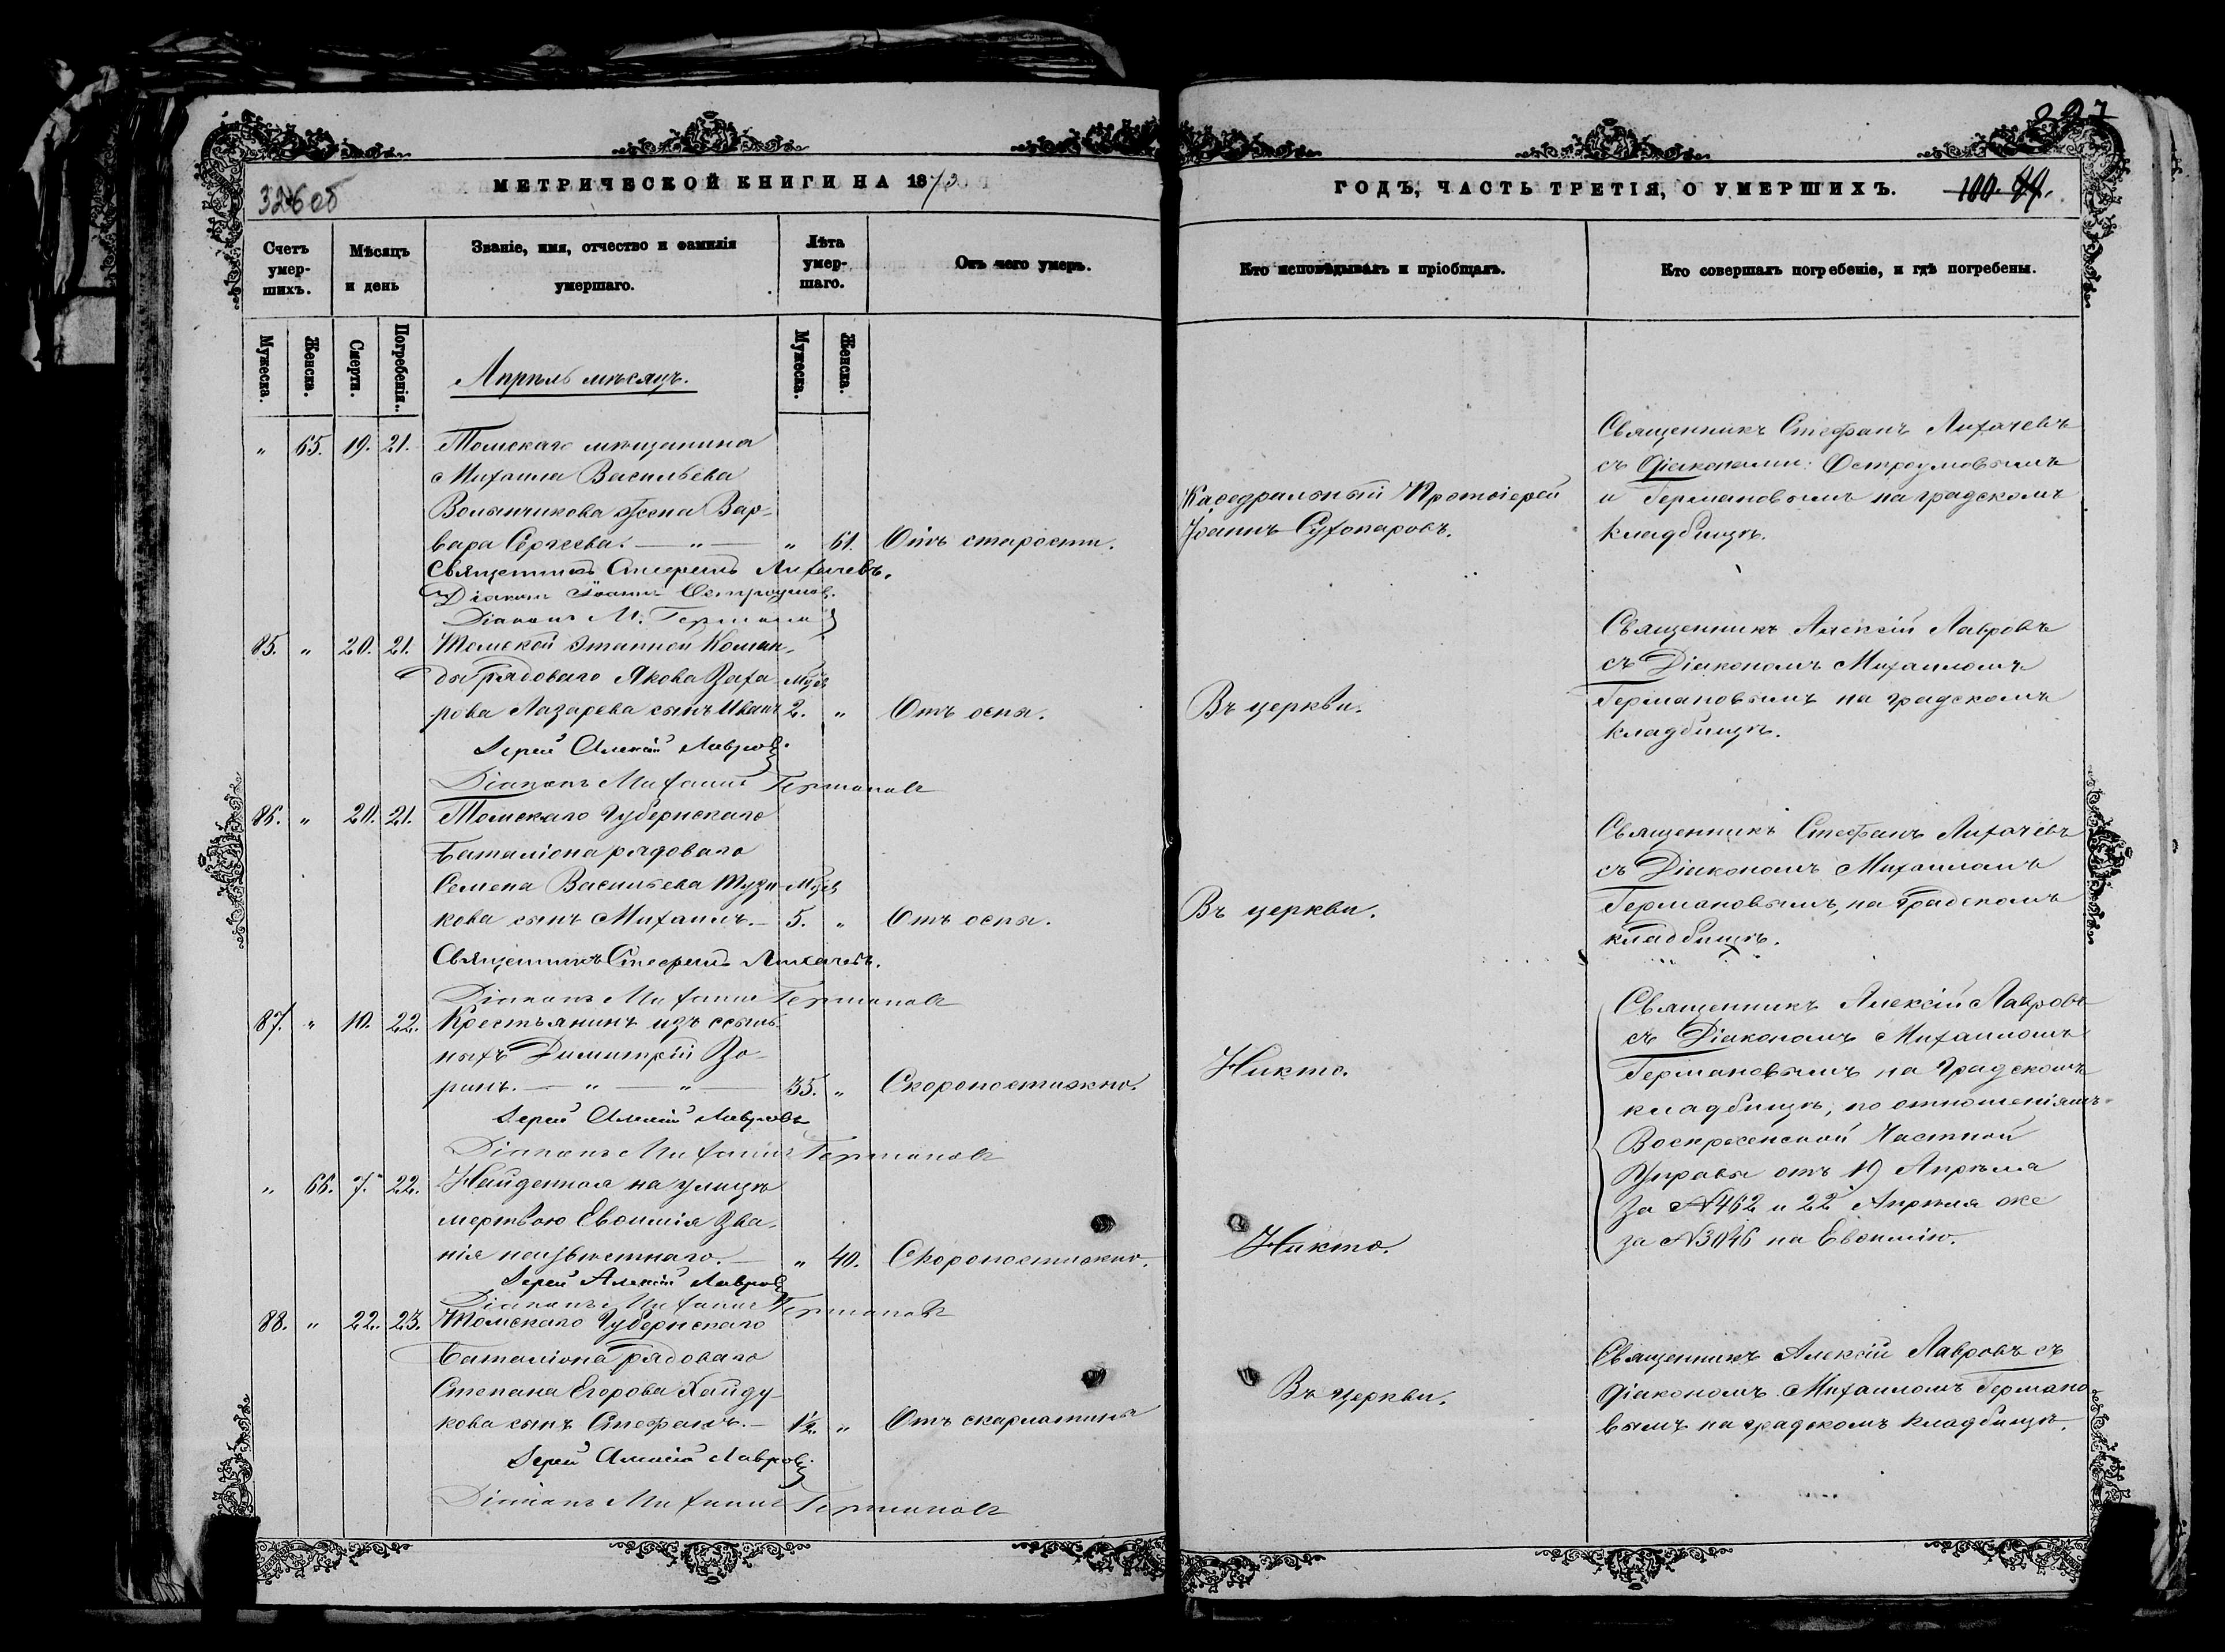 326 об
МЕТРИЧЕСКОЙ КНИГИ НА 1873
Счетъ умер-шихъ.
Мѣсяцъ и день
Званіе, имя, отчество и фамилія умершаго.
Лѣта умер-шаго.
Отъ чего умеръ.
Мужеска.
Женска.
Смерти.
Погребенія.
Мужеска.
Женска.
Апрѣль мѣсяцъ.
" 65. 19. 21. Томскаго мѣщанина
Михаила Васильева
жена Вар-
вара Сергѣева. — " — " 61. Отъ старости.
Священникъ Стефанъ Лихачевъ.
Діаконъ Іоаннъ Остроумов.
Діаконъ М. Германов
85. " 20. 21. Томской этапной Коман-
ды рядоваго Якова Заха- мѣс
рова Лазарева сынъ Иванъ 2. " Отъ оспы.
Іерей Алексій Лавров.
Діаконъ Михаилъ Германовъ
86. " 20. 21. Томскаго Губернскаго
баталіона рядоваго
Семена Васильева мѣс
кова сынъ Михаилъ. — 5. " Отъ оспы.
Священникъ Стефанъ Лихачевъ.
Діаконъ Михаилъ Германовъ
87. " 10. 22. Крестьянинъ изъ ссыль-
ныхъ Димитрій Зо-
ринъ. — " — " — 35. " Скоропостижно.
Іерей Алексій Лавровъ
Діаконъ Михаилъ Германовъ
" 66. 7. 22. Найденная на улицѣ
мертвою Евфимія зва-
нія неизвѣстнаго. — " 40. Скоропостижно.
Іерей Алексій Лавровъ
Діаконъ Михаилъ Германовъ
88. " 22. 23. Томскаго Губернскаго
баталіона рядоваго
Степана Егорова Хайду-
кова сынъ Стефанъ. — 1½. " Отъ скарлатины
Іерей Алексій Лавров.
Діаконъ Михаилъ Германовъ
327
ГОДЪ, ЧАСТЬ ТРЕТІЯ, О УМЕРШИХЪ.
100.
Кто исповѣдывалъ и пріобщалъ.
Кто совершалъ погребеніе, и гдѣ погребены.
Каѳедральный Протоіерей
Іоаннъ Сухопаровъ.
Священникъ Стефанъ Лихачевъ
съ Діаконами: Остроумовымъ
и Германовымъ на градскомъ
кладбищѣ.
Въ церкви.
Священникъ Алексій Лавровъ
съ Діакономъ Михаиломъ
Германовымъ на градскомъ
кладбищѣ.
Въ церкви.
Священникъ Стефанъ Лихачевъ
съ Діакономъ Михаиломъ
Германовымъ, на градскомъ
кладбищѣ.
Никто.
Священникъ Алексій Лавровъ
съ Діакономъ Михаиломъ
Германовымъ на Градскомъ
кладбищѣ, по отношеніямъ
Воскресенской Частной
Управы отъ 19 Апрѣля
за №462 и 22 Апрѣля же
за №3046 на Евфимію.
Никто.
Въ церкви.
Священникъ Алексій Лавровъ съ
Діакономъ Михаиломъ Германо
вымъ на градскомъ кладбищѣ.